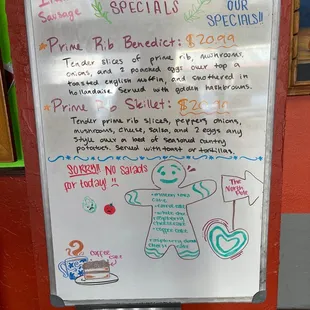 Sausage
SPECIALS
OUR
SPECIALS!!
Prime Rib Benedict: $20.99
Tender slices of prime rib, mushrooms,
onions, and 2 poached eggs over top a
toasted english muffin, and smothered in
hollandaise. Served with golden hashbrowns.
Prime Rib Skillet:
Tender prime rib slices, peppers, onions,
mushrooms, cheese, salsa, and 2 eggs any
style over a bed of seasoned country
potatoes. Served with toast or tortillas.
SORRY! No Salads
for today! !!
The North
Pole
cake
carrot cake
raspberry
cheesecake
coffee cake
raspberry
COFFEE
CAKE